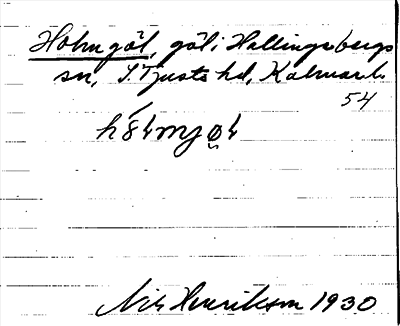 Holmgöl, göl i Hallingebergs
sn, S. Tjusts hd, Kalmar l.
54
Nils Henrikson 1930